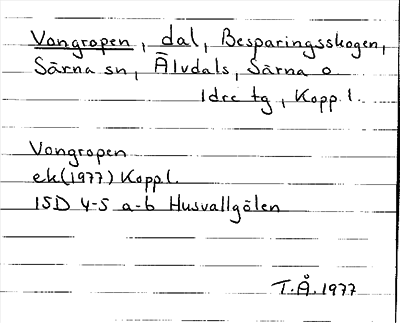 Vongropen, dal, Besparingsskogen,
Särna sn, Älvdals, Särna o
Idre tg, Kopp l.
Vongropen
ek(1977) Kopp l.
15D 4-5 a-b Husvallgölen
T.Å.1977